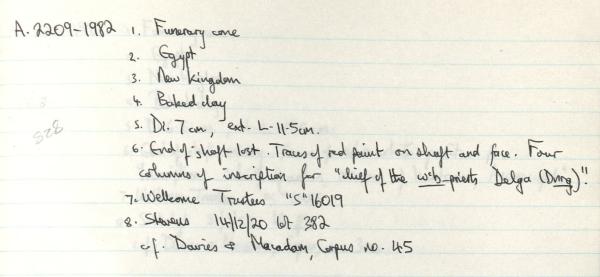 A.2209-1982 1. Funerary cone
2. Egypt
3. New Kingdom
4. Baked clay
5. Di. 7cm, ext. L-11.5cm.
6. End of shaft lost. Traces of red paint on shaft and face. Four
columns of inscription for "chief of the wꜥb-priests Delga (Dlng)".
7. Wellcome Trustees "S" 16019
8. Stevens 14/12/20 lot 382
c/f. Davies & Macadam, Corpus no. 45
528